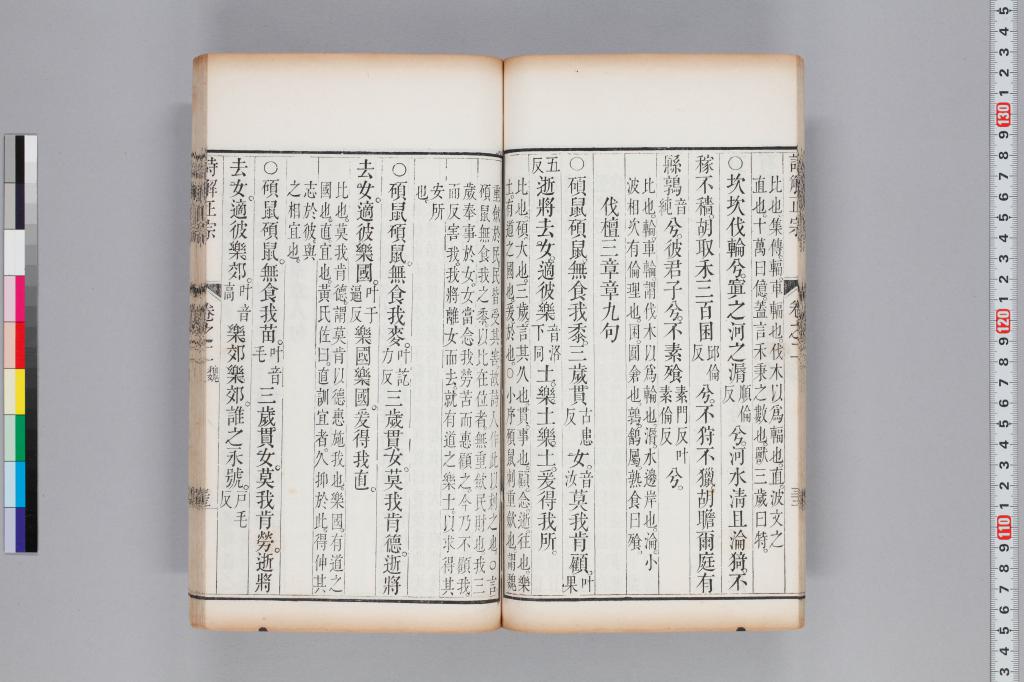 比也集傳輻車輻也伐木以爲輻也直波文之
直也十萬曰億蓋言禾秉之數也獸三歲曰特
○坎坎伐輪兮寘之河之漘順倫反兮河水清且淪猗不
稼不穡胡取禾三百囷邱倫反兮不狩不獵胡瞻爾庭有
縣鶉音純兮彼君子兮不素飧素門反叶素倫反兮
比也輪車輪謂伐木以爲輪也漘水邊岸也淪小
波相次有倫理也囷圓倉也鶉鵪屬熟食曰飧
伐檀三章章九句
○碩鼠碩鼠無食我黍三歲貫古患反女音汝莫我肯顧叶果
五反逝將去女適彼樂音洛下同土樂土樂土爰得我所
比也碩大也三歲言其久也貫事也顧念逝往也樂
土有道之國也爰於也○小序碩鼠刺重斂也謂魏
碩鼠無食我之黍以比在位者無重斂民財也我三
歲奉事於女女當念我勞苦而惠顧之今乃不顧我
而反害我我將離女而去就有道之樂土以求得其
安所
也
○碩鼠碩鼠無食我麥叶訖力反三歲貫女莫我肯德逝將
去女適彼樂國叶于逼反樂國樂國爰得我直
比也莫我肯德謂莫肯以德惠施我也樂國有道之
國也直宜也黃氏佐曰直訓宜者久抑於此得伸其
志於彼與
之相宜也
○碩鼠碩鼠無食我苗叶音毛三歲貫女莫我肯勞逝將
去女適彼樂郊叶音高樂郊樂郊誰之永號戸毛反
詩解正宗 卷之二 魏